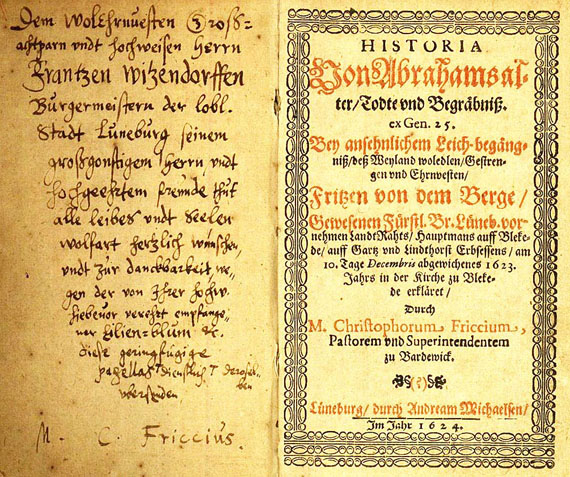 Dem Wolehrnuesten Groß-
achtparn vndt hochweisen Herrn
Frantzen Witzendorffen
Burgermeistern der lobl.
Stadt Lüneburg seinem
großgonstigem Herrn vndt
hochgeehrtem freunde thut
alle leibes vndt Seelen
wolfart hertzlich wünschen,
vndt zur danckbarkeit we-
gen der von Ihrer hochw.
hiebeuor verehrt empfange-
ner Lilien-blum &c.
diese geringfügige
pagellas dienstlich
vbersenden
M. C. Friccius.
HISTORIA
Von Abrahams al-
ter/Todte vnd Begräbniß.
ex Gen. 25.
Bey ansehnlichem Leich-begäng-
niß/deß Weyland woledlen/Gestren-
gen vnd Ehrnvesten/
Fritzen von dem Berge/
Gewesenen Fürstl. Br. Lüneb. vor-
nehmen LandtRahts/Hauptmans auff Bleke-
de/auff Gartz vnd Lindthorst Erbsessens/am
10. Tage Decembris abgewichenes 1623.
Jahrs in der Kirche zu Bleke-
de erkläret/
Durch
M. Christophorum Friccium,
Pastorem vnd Superintendentem
zu Bardewick.
Lüneburg/durch Andream Michaelsen/
Im Jahr 1624.